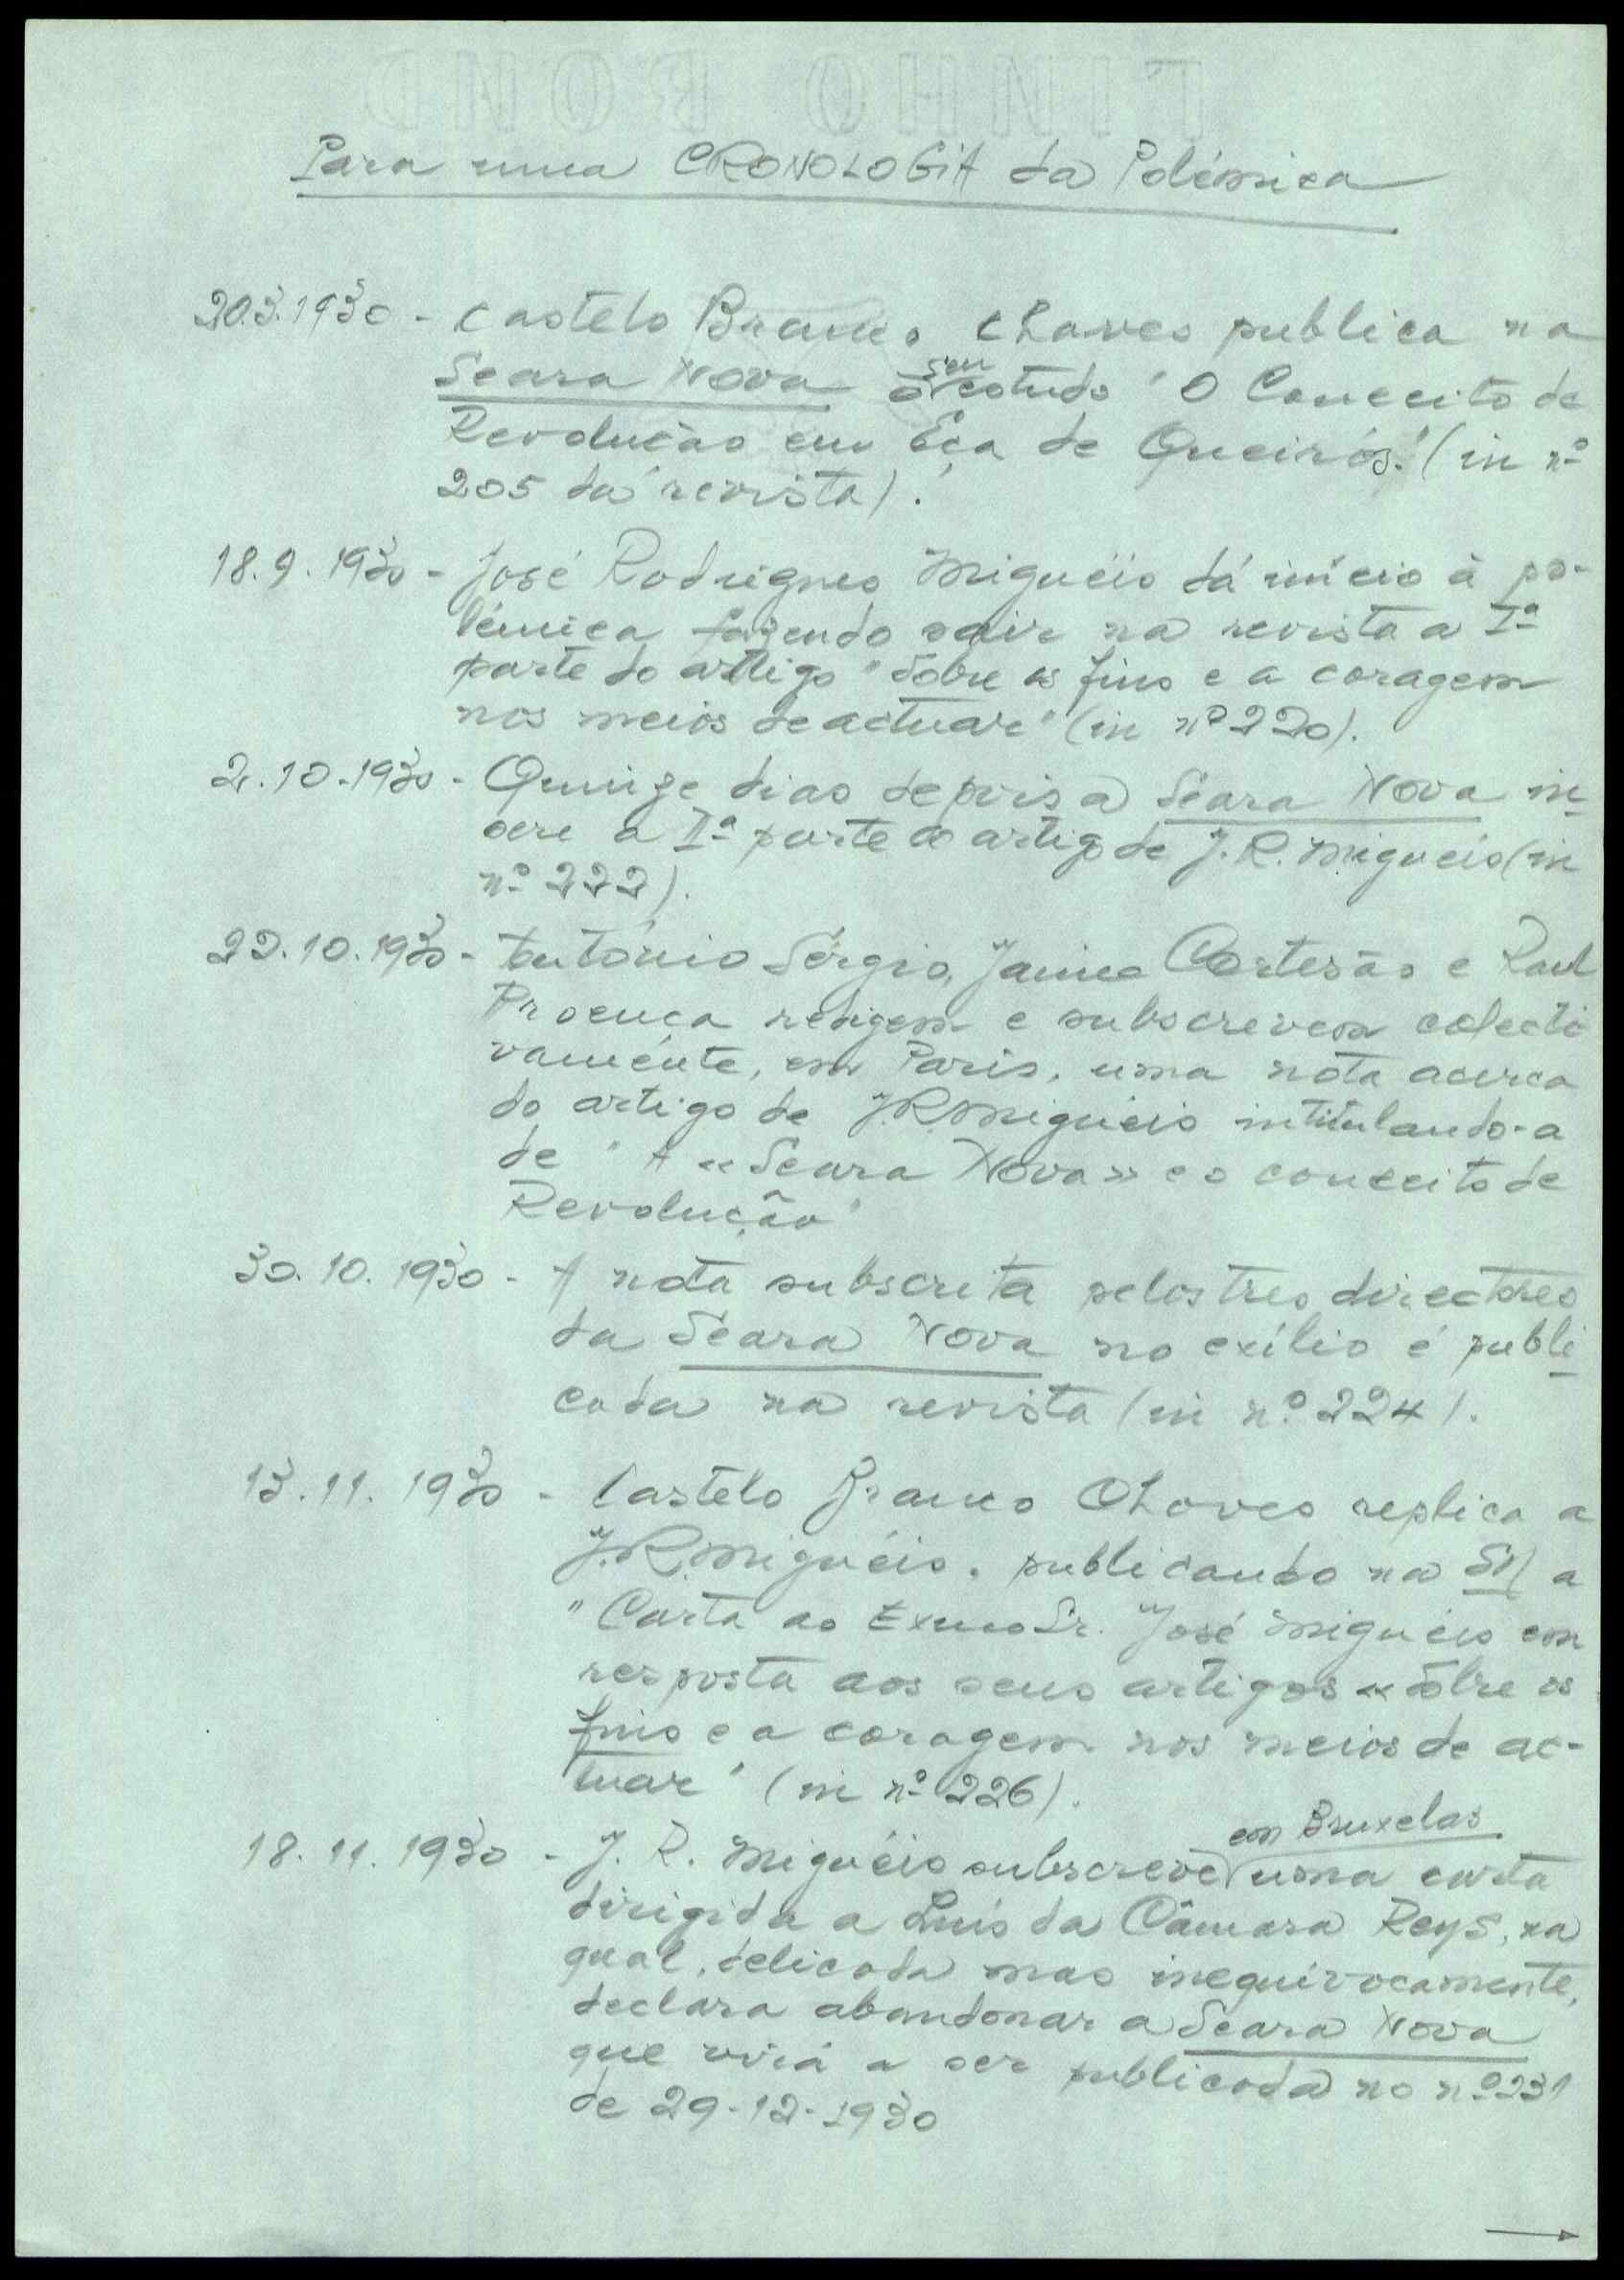 LINHO BOND
Para uma CRONOLOGIA da Polémica
20.3.1930 - Castelo Branco Chaves publica na
Seara Nova o seu estudo "O Conceito de
Revolução em Eça de Queirós" (in nº
205 da revista).
18.9.1930 - José Rodrigues Miguéis dá início à po-
lémica fazendo sair na revista a Iª
parte do artigo "Sobre os fins e a coragem
nos meios de actuar" (in nº 220).
2.10.1930 - Quinze dias depois a Seara Nova in-
sere a IIª parte do artigo de J. R. Miguéis (in
nº 222).
22.10.1930 - António Sérgio, Jaime Cortesão e Raul
Proença redigem e subscrevem colecti
vamente, em Paris, uma nota acerca
do artigo de J.R. Miguéis intitulando-a
de "A «Seara Nova» e o conceito de
Revolução"
30.10.1930 - A nota subscrita pelos três directores
da Seara Nova no exílio é publi
cada na revista (in nº 224).
13.11.1930 - Castelo Branco Chaves replica a
J.R. Miguéis, publicando na SN a
"Carta ao Exmo Sr. José Miguéis em
resposta aos seus artigos «Sôbre os
fins e a coragem nos meios de ac-
tuar" (in nº 226).
em Bruxelas
18.11.1930 - J. R. Miguéis subscreve uma carta
dirigida a Luís da Câmara Reys, na
qual, delicada mas inequívocamente,
declara abandonar a Seara Nova
que virá a ser publicada no nº 231
de 29-12-1930